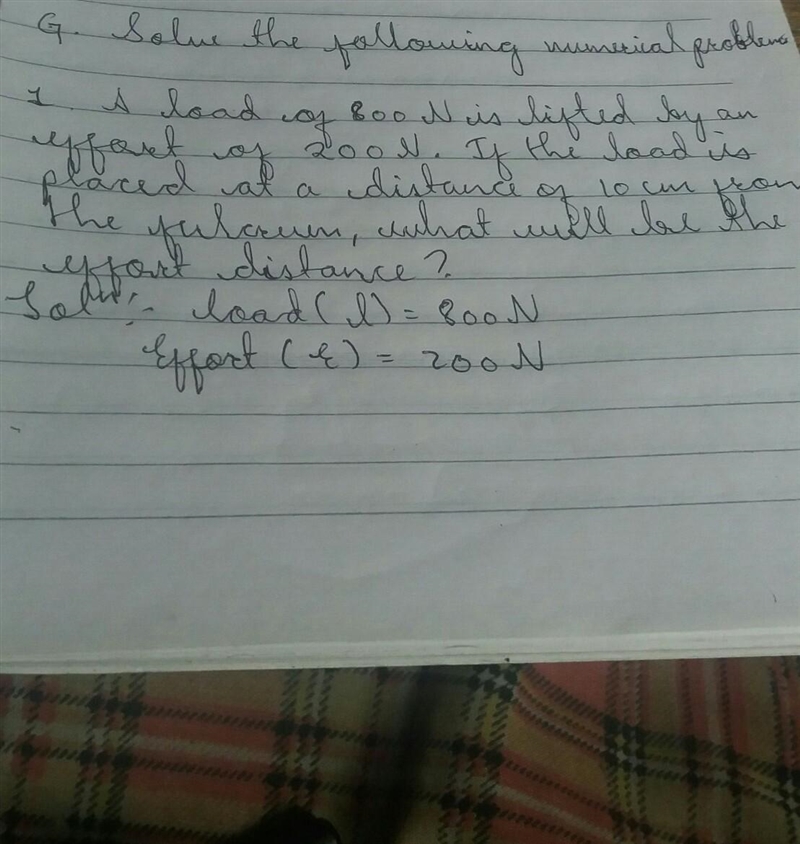 G. Solve the following numerical problems
1. A load of 800 N is lifted by an
effort of 200 N. If the load is
placed at a distance of 10 cm from
the fulcrum, what will be the
effort distance?
Soln:- load (l) = 800 N
Effort (E) = 200 N